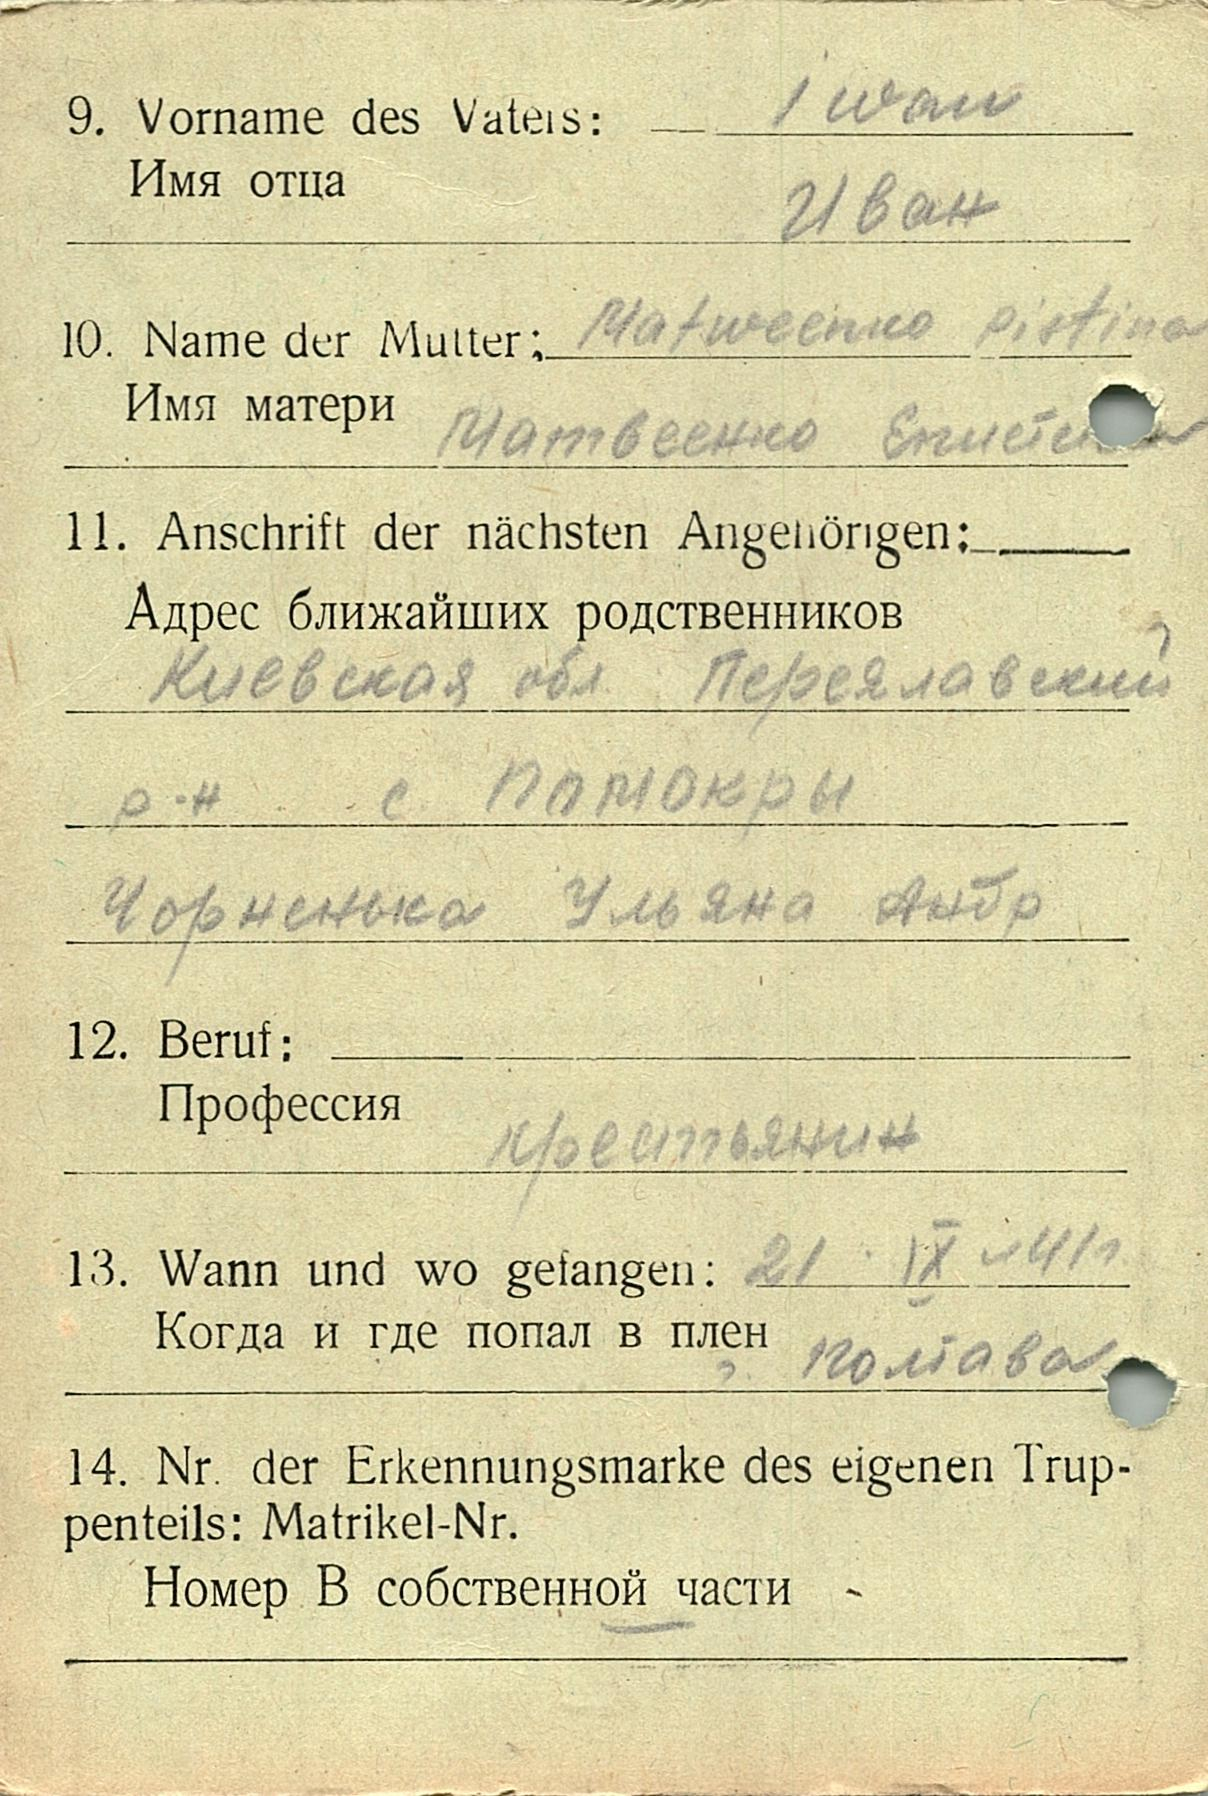 9. Vorname des Vaters: Iwan
Имя отца
Иван
10. Name der Mutter: Matweenko pistina
Имя матери
Матвеенко
11. Anschrift der nächsten Angehörigen:
Адрес ближайших родственников
Киевская обл. Переяславский
р-н с.
Чорненька Ульяна Андр
12. Beruf:
Профессия
крестьянин
13. Wann und wo gefangen: 21 IX
Когда и где попал в плен
Полтава
14. Nr. der Erkennungsmarke des eigenen Trup-
penteils: Matrikel-Nr.
Номер В собственной части -